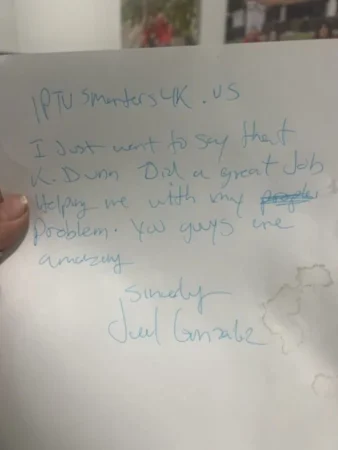 IPTV Smarters4K.US
I Just want to say that
K. Dunn Did a great Job
Helping me with my
Problem. You guys are
amazing
Sincerely
Gonzalez